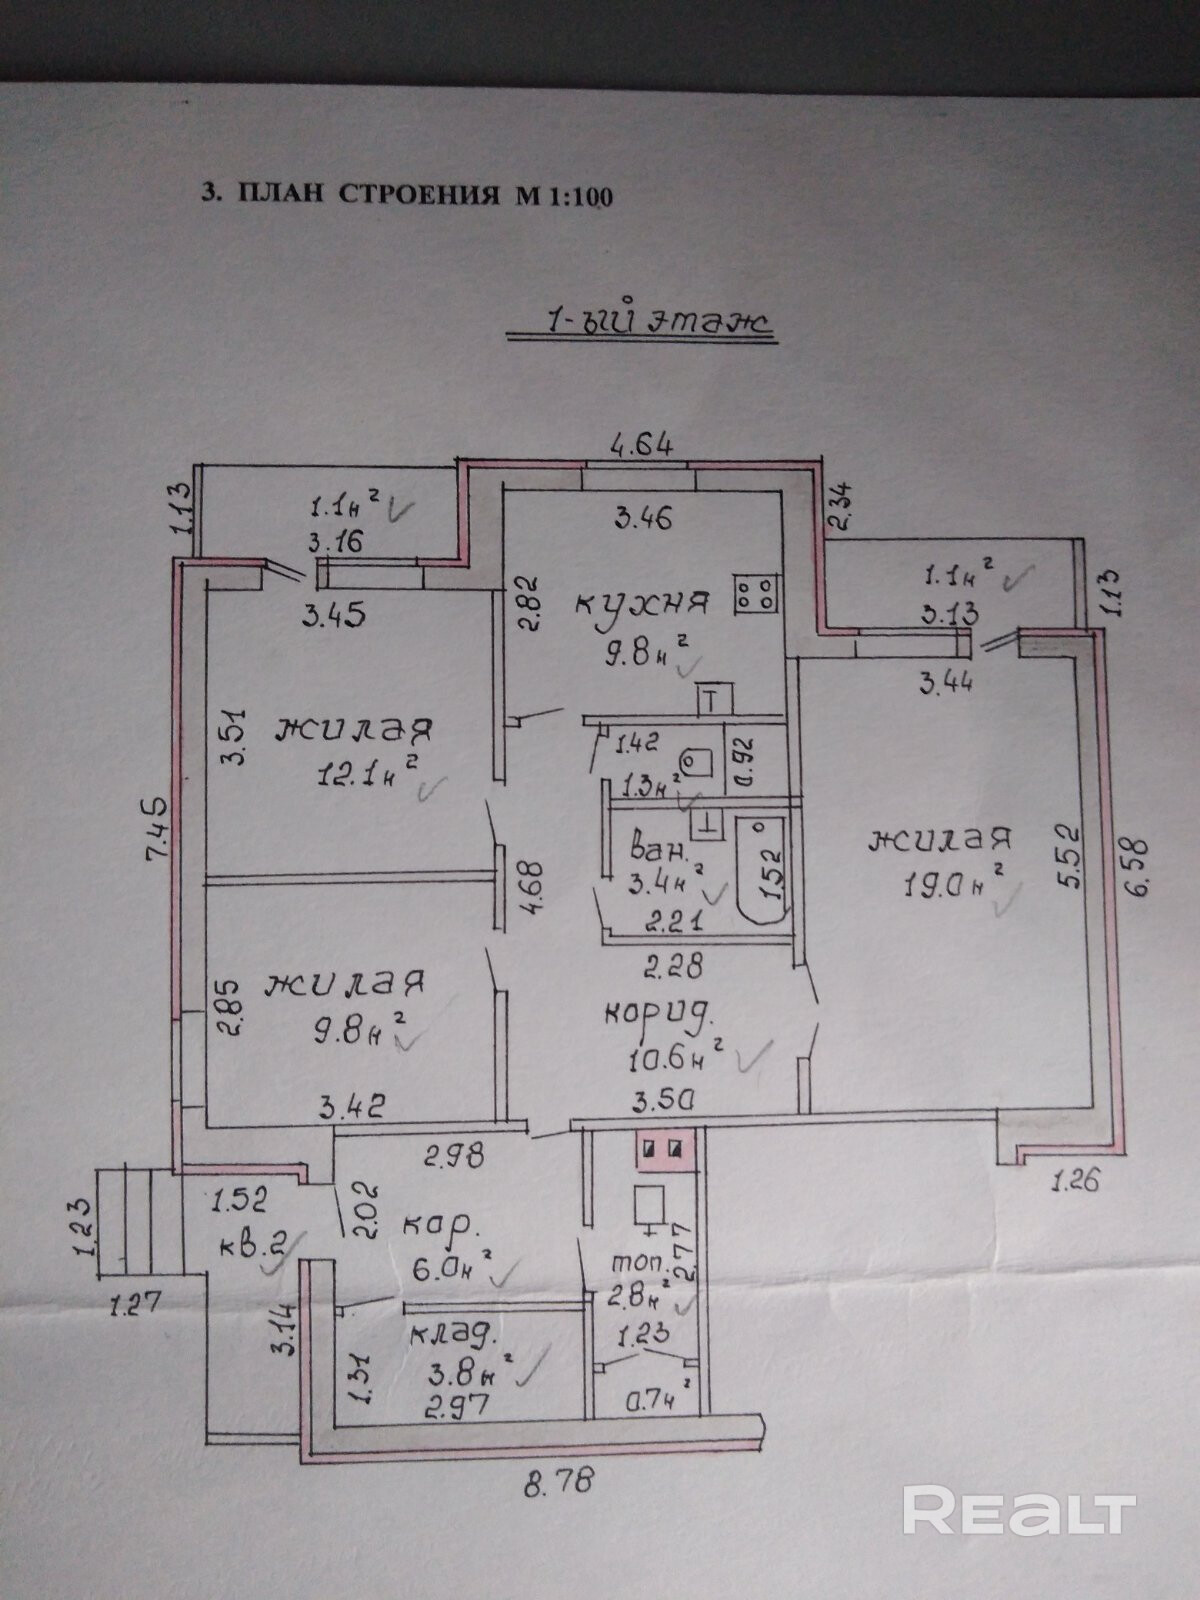 3. ПЛАН СТРОЕНИЯ М 1:100
1-ый этаж
4.64
1.13
1.1м²
3.16
3.46
2.34
1.1м²
3.13
1.13
3.45
2.82
кухня
9.8м²
3.44
3.51
жилая
12.1м²
1.42
1.3м²
0.92
7.45
4.68
ван.
3.4м²
1.52
2.21
жилая
19.0м²
5.52
6.58
2.85
жилая
9.8м²
2.28
корид.
10.6м²
3.42
3.50
2.98
1.26
1.23
1.52
кв.2
2.02
кор.
6.0м²
2.77
топ.
2.8м²
1.27
3.14
1.31
клад.
3.8м²
2.97
1.23
0.7м²
8.78
REALT